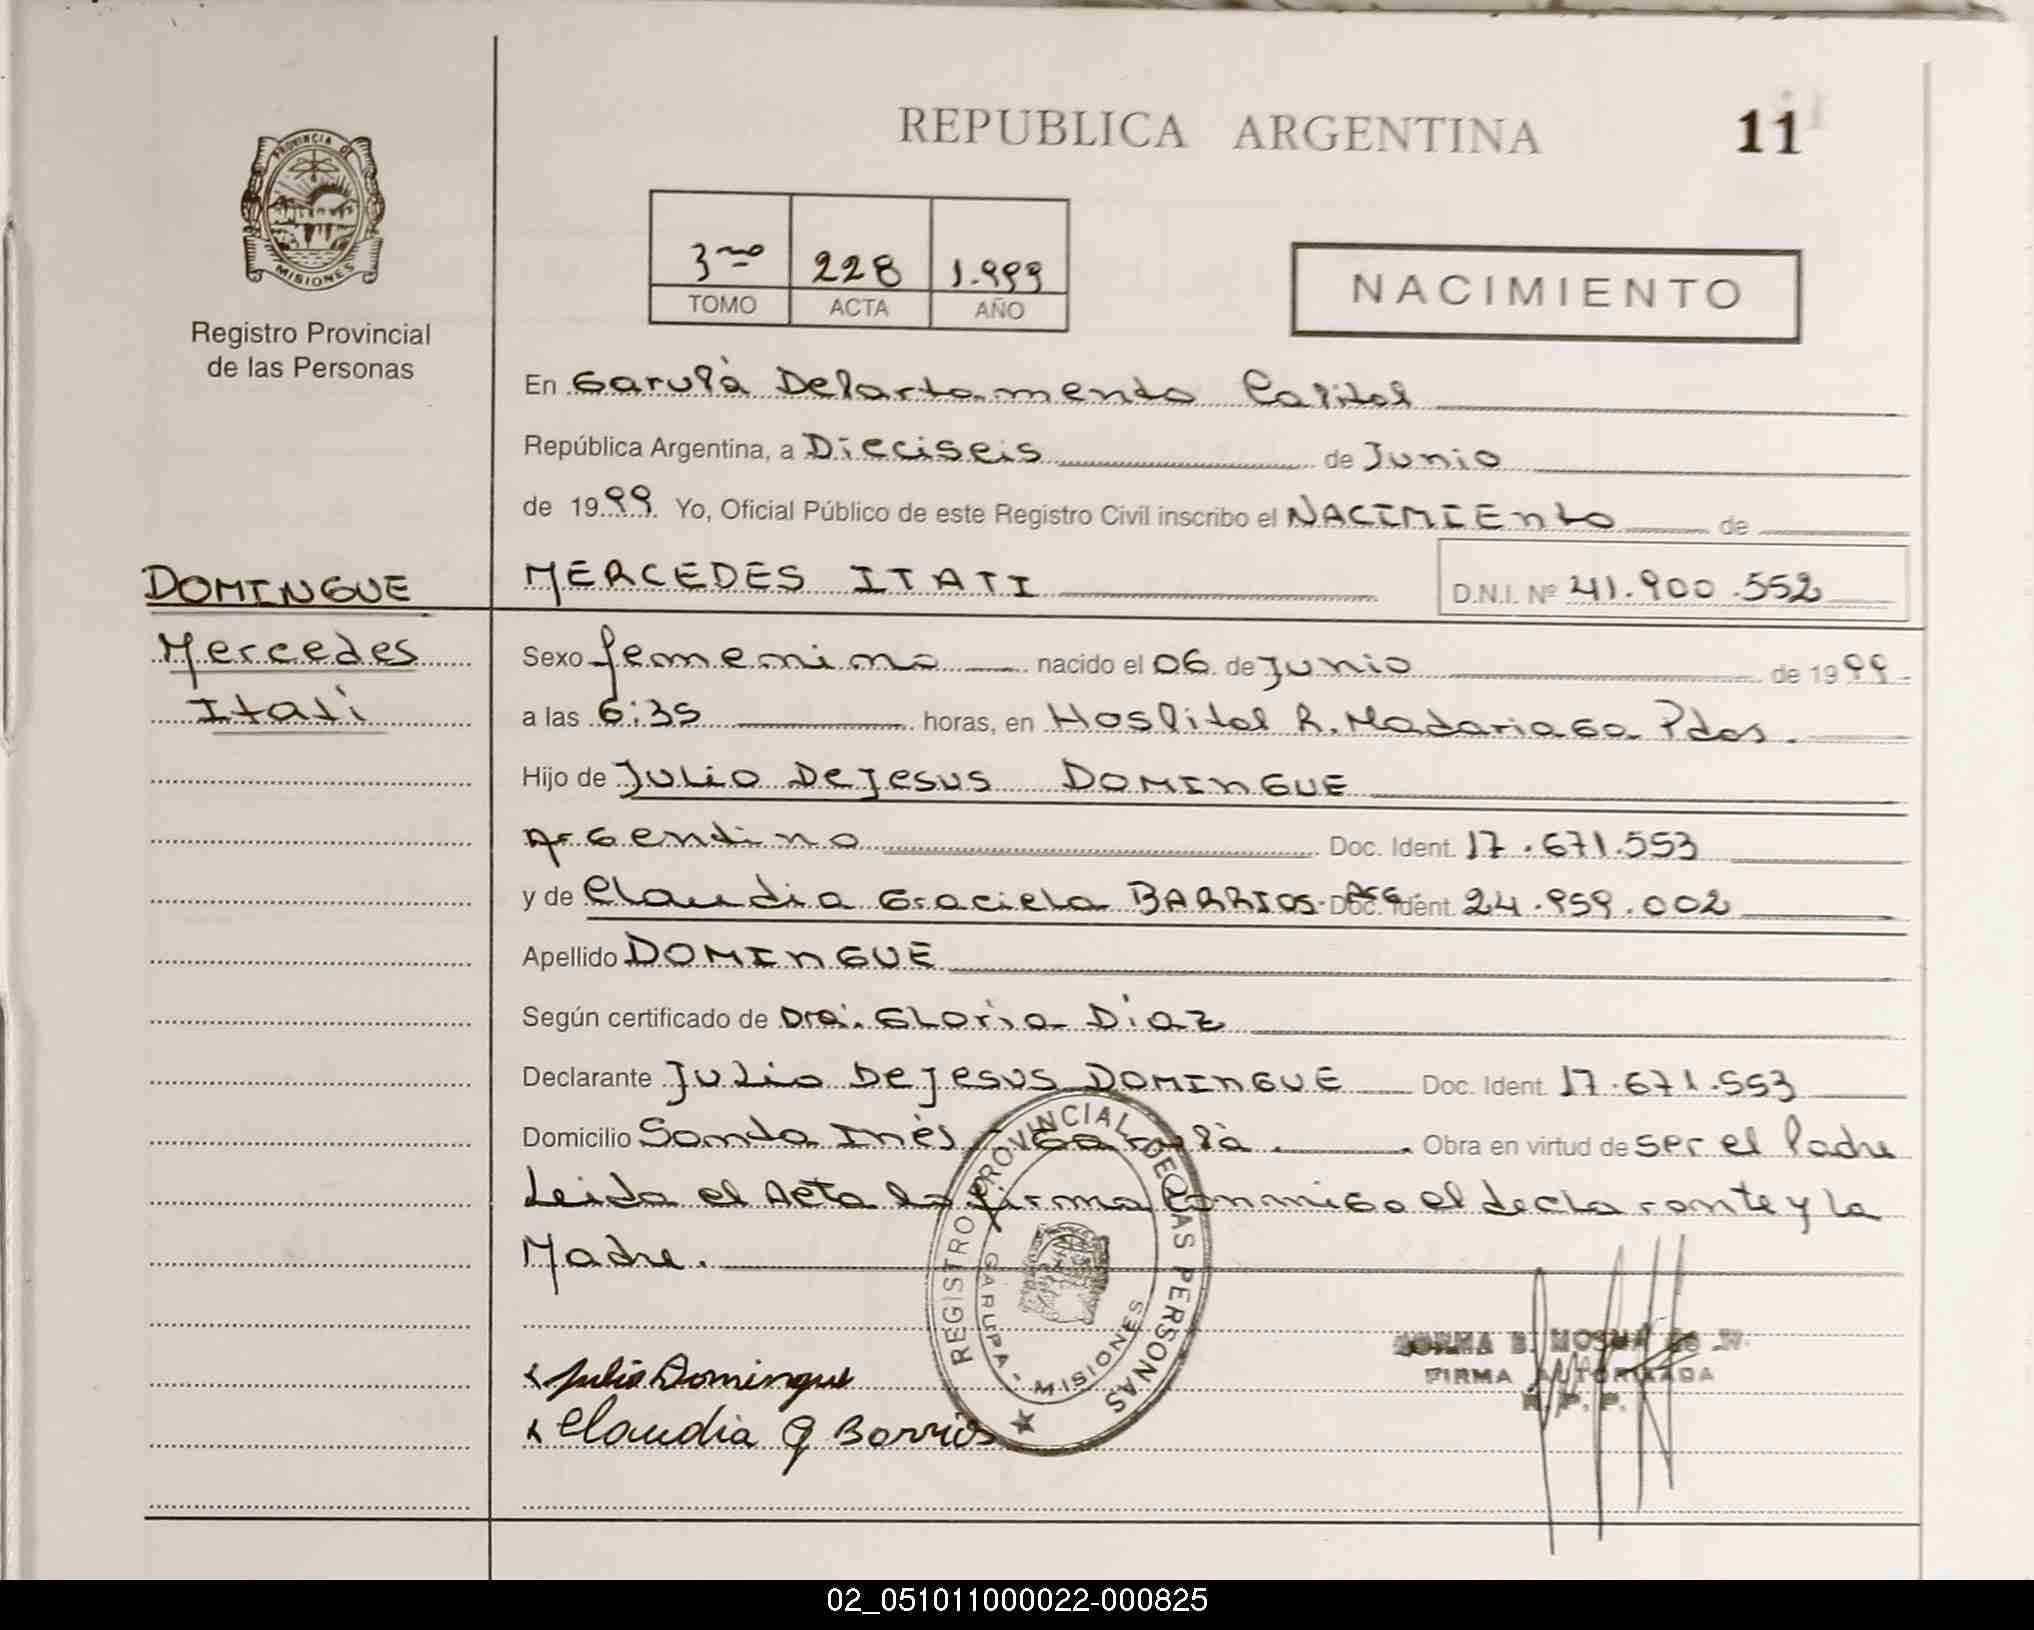 REPUBLICA ARGENTINA 11
PROVINCIA DE
MISIONES
Registro Provincial
de las Personas
3ro 228 1.999
TOMO ACTA AÑO
NACIMIENTO
En Garupà Departamento Capital
República Argentina, a Dieciseis de Junio
de 1999 Yo, Oficial Público de este Registro Civil inscribo el NACIMIENTO de
MERCEDES ITATI D.N.I. Nº 41.900.552
DOMINGUE
Mercedes
Itati
Sexo femenino nacido el 06 de Junio de 1999
a las 6:35 horas, en Hospital R. Madariaga Pdas.
Hijo de Julio De Jesus DOMINGUE
Argentino Doc. Ident. 17.671.553
y de Claudia Graciela BARRIOS Arg. Doc. Ident. 24.959.002
Apellido DOMINGUE
Según certificado de Dra. Gloria Diaz
Declarante Julio De Jesus DOMINGUE Doc. Ident. 17.671.553
Domicilio Santa Inès - Garupà Obra en virtud de ser el Padre
Leida el Acta la firma conmigo el declarante y la
Madre.
REGISTRO PROVINCIAL DE LAS PERSONAS
GARUPA - MISIONES
Julio Domingue
Claudia G Barrios
NORMA B.
FIRMA AUTORIZADA
R. P. P.
02_051011000022-000825